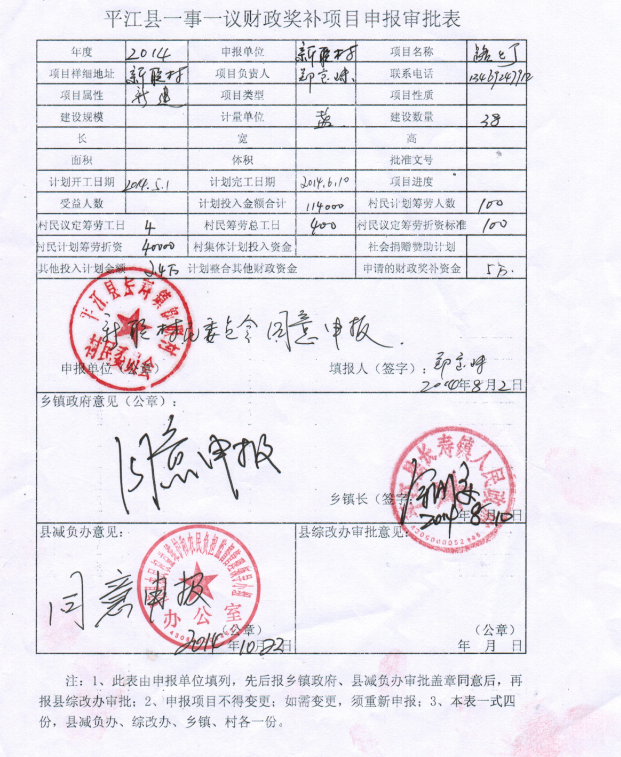 平江县一事一议财政奖补项目申报审批表
年度 2014 申报单位 新联村 项目名称 路灯
项目样细地址 新联村 项目负责人 联系电话
项目属性 新建 项目类型 项目性质
建设规模 计量单位 盏 建设数量 38
长 宽 高
面积 体积 批准文号
计划开工日期 2014.5.1 计划完工日期 2014.6.10 项目进度
受益人数 计划投入金额合计 114000 村民计划筹劳人数 100
村民议定筹劳工日 4 村民筹劳总工日 400 村民议定筹劳折资标准 100
村民计划筹劳折资 40000 村集体计划投入资金 社会捐赠赞助计划
其他投入计划金额 2.4万 计划整合其他财政资金 申请的财政奖补资金 5万.
新联村民委员会同意申报.
村民委员会
申报单位(公章) 填报人(签字):
2014年8月2日
乡镇政府意见(公章):
同意申报
平江县长寿镇人民政府
乡镇长(签字)
2014年8月10日
县减负办意见: 县综改办审批意见:
同意申报
办公室
(公章) (公章)
2014年10月22日 年 月 日
注:1、此表由申报单位填列,先后报乡镇政府、县减负办审批盖章同意后,再
报县综改办审批;2、申报项目不得变更;如需变更,须重新申报;3、本表一式四
份,县减负办、综改办、乡镇、村各一份。